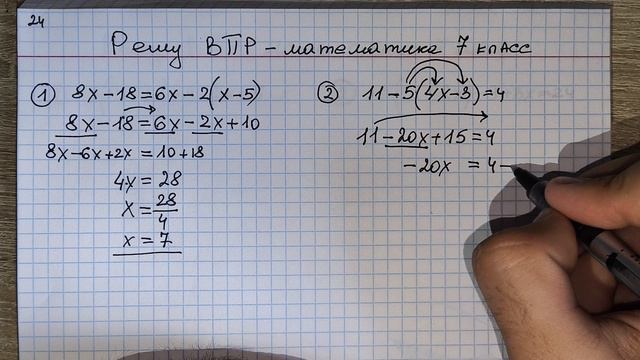 24
Решу ВПР - математика 7 класс
① 8x - 18 = 6x - 2(x - 5)
8x - 18 = 6x - 2x + 10
8x - 6x + 2x = 10 + 18
4x = 28
x = 28/4
x = 7
② 11 - 5(4x - 3) = 4
11 - 20x + 15 = 4
-20x = 4 -